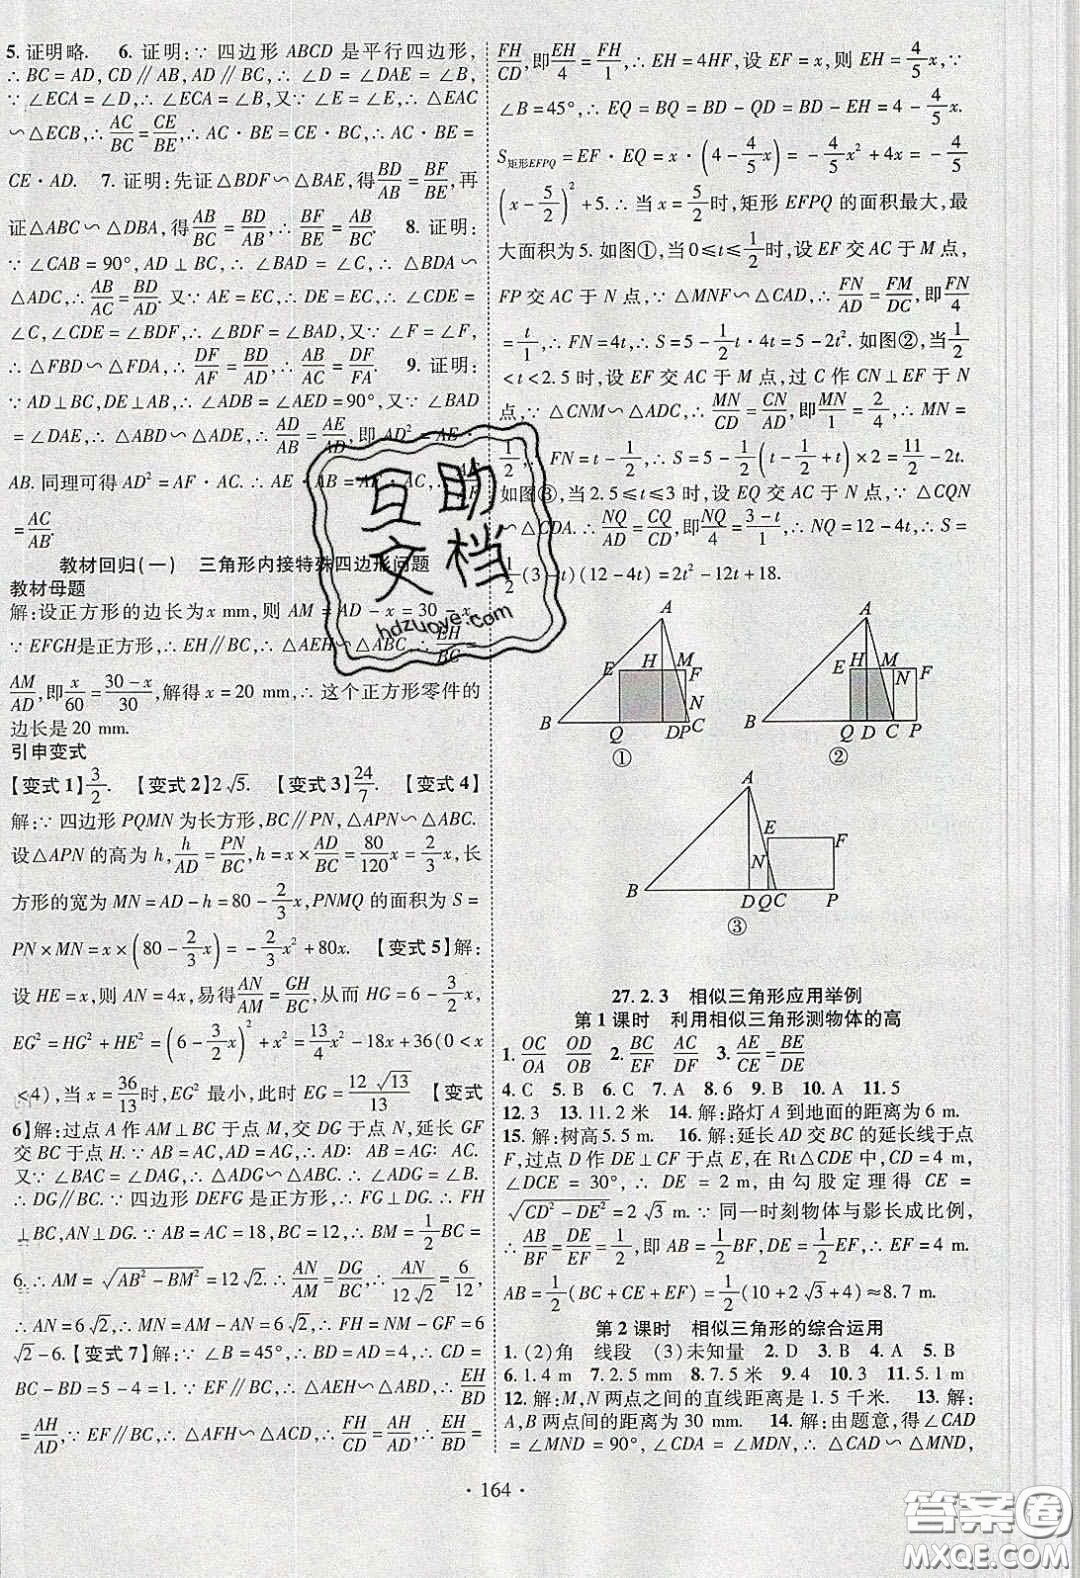 5. 证明略. 6. 证明:∵ 四边形 ABCD 是平行四边形,
∴ BC = AD, CD∥AB, AD∥BC, ∴ ∠D = ∠DAE = ∠B,
∵ ∠ECA = ∠D, ∴ ∠ECA = ∠B, 又∵ ∠E = ∠E, ∴ △EAC
∽△ECB, ∴ AC/BC = CE/BE, ∴ AC·BE = CE·BC, ∴ AC·BE =
CE·AD. 7. 证明:先证△BDF∽△BAE, 得BD/AB = BF/BE, 再
证△ABC∽△DBA, 得AB/BC = BD/AB, ∴ BF/BE = AB/BC. 8. 证明:
∵ ∠CAB = 90°, AD⊥BC, ∴ ∠BAD = ∠C, ∴ △BDA∽
△ADC, ∴ AB/AC = BD/AD. 又∵ AE = EC, ∴ DE = EC, ∴ ∠CDE =
∠C, ∠CDE = ∠BDF, ∴ ∠BDF = ∠BAD, 又∵ ∠F = ∠F,
∴ △FBD∽△FDA, ∴ DF/AF = BD/AD, ∴ AB/AC = DF/FA. 9. 证明:
∵ AD⊥BC, DE⊥AB, ∴ ∠ADB = ∠AED = 90°, ∵ ∠BAD
= ∠DAE, ∴ △ABD∽△ADE, ∴ AD/AB = AE/AD, 即 AD² = AE·
AB. 同理可得 AD² = AF·AC. ∴ AE·AB = AF·AC.
= AC/AB.
教材回归(一) 三角形内接特殊四边形问题
教材母题
解:设正方形的边长为 x mm, 则 AM = AD - x = 30 - x.
∵ EFGH是正方形, ∴ EH∥BC, ∴ △AEH∽△ABC, ∴ EH/BC =
AM/AD, 即x/60 = (30-x)/30, 解得 x = 20 mm, ∴ 这个正方形零件的
边长是 20 mm.
引申变式
【变式 1】3/2. 【变式 2】2√5. 【变式 3】24/7. 【变式 4】
解:∵ 四边形 PQMN 为长方形, BC∥PN, △APN∽△ABC.
设△APN 的高为 h, h/AD = PN/BC, h = x × AD/BC = 80/120 x = 2/3 x, 长
方形的宽为 MN = AD - h = 80 - 2/3 x, PNMQ 的面积为 S =
PN × MN = x × (80 - 2/3 x) = - 2/3 x² + 80x. 【变式 5】解:
设 HE = x, 则 AN = 4x, 易得AN/AM = GH/BC, 从而 HG = 6 - 3/2 x,
EG² = HG² + HE² = (6 - 3/2 x)² + x² = 13/4 x² - 18x + 36(0 < x
<4), 当 x = 36/13时, EG² 最小, 此时 EG = 12√13/13. 【变式
6】解:过点 A 作 AM⊥BC 于点 M, 交 DG 于点 N, 延长 GF
交 BC 于点 H. ∵ AB = AC, AD = AG, ∴ AD∶AB = AG∶AC.
又∵ ∠BAC = ∠DAG, ∴ △ADG∽△ABC. ∴ ∠ADG = ∠B.
∴ DG∥BC. ∵ 四边形 DEFG 是正方形, ∴ FG⊥DG. ∴ FH
⊥BC, AN⊥DG. ∵ AB = AC = 18, BC = 12, ∴ BM = 1/2 BC =
6. ∴ AM = √(AB² - BM²) = 12√2. ∴ AN/AM = DG/BC, ∴ AN/12√2 = 6/12,
∴ AN = 6√2, ∴ MN = AM - AN = 6√2, ∴ FH = NH - GF = 6
√2 - 6. 【变式 7】解:∵ ∠B = 45°, ∴ BD = AD = 4, ∴ CD =
BC - BD = 5 - 4 = 1. ∵ EH∥BC, ∴ △AEH∽△ABD, ∴ EH/BD
= AH/AD, ∵ EF∥BC, ∴ △AFH∽△ACD, ∴ FH/CD = AH/AD, ∴ EH/BD =
FH/CD, 即EH/4 = FH/1, ∴ EH = 4HF, 设 EF = x, 则 EH = 4/5 x, ∵
∠B = 45°, ∴ EQ = BQ = BD - QD = BD - EH = 4 - 4/5 x.
S矩形EFPQ = EF·EQ = x·(4 - 4/5 x) = - 4/5 x² + 4x = - 4/5
(x - 5/2)² + 5. ∴ 当 x = 5/2时, 矩形 EFPQ 的面积最大, 最
大面积为 5. 如图①, 当 0 ≤ t ≤ 1/2时, 设 EF 交 AC 于 M 点,
FP 交 AC 于 N 点, ∵ △MNF∽△CAD, ∴ FN/AD = FM/DC, 即FN/4
= t/1, ∴ FN = 4t, ∴ S = 5 - 1/2 t·4t = 5 - 2t². 如图②, 当1/2
< t < 2.5 时, 设 EF 交 AC 于 M 点, 过 C 作 CN⊥EF 于 N
点, ∵ △CNM∽△ADC, ∴ MN/CD = CN/AD, 即MN/1 = 2/4, ∴ MN =
1/2, ∴ FN = t - 1/2, ∴ S = 5 - 1/2 (t - 1/2 + t) × 2 = 11/2 - 2t.
如图③, 当 2.5 ≤ t ≤ 3 时, 设 EQ 交 AC 于 N 点, ∵ △CQN
∽△CDA. ∴ NQ/AD = CQ/CD, 即NQ/4 = (3-t)/1, ∴ NQ = 12 - 4t, ∴ S =
1/2 (3-t)(12-4t) = 2t² - 12t + 18.
A
E H M F
N
B Q D P C
①
A
H M
E N F
B Q D C P
②
A
E F
N
B D Q C P
③
27.2.3 相似三角形应用举例
第 1 课时 利用相似三角形测物体的高
1. OC/OA OD/OB 2. BC/EF AC/DF 3. AE/CE = BE/DE
4. C 5. B 6. C 7. A 8. 6 9. B 10. A 11. 5
12. 3 13. 11.2 米 14. 解:路灯 A 到地面的距离为 6 m.
15. 解:树高 5.5 m. 16. 解:延长 AD 交 BC 的延长线于点
F, 过点 D 作 DE⊥CF 于点 E, 在 Rt△CDE 中, CD = 4 m,
∠DCE = 30°, ∴ DE = 2 m, 由勾股定理得 CE =
√(CD² - DE²) = 2√3 m. ∵ 同一时刻物体与影长成比例,
∴ AB/BF = DE/EF = 1/2, 即 AB = 1/2 BF, DE = 1/2 EF, ∴ EF = 4 m.
AB = 1/2 (BC + CE + EF) = 1/2 (10 + 2√3 + 4) ≈ 8.7 m.
第 2 课时 相似三角形的综合运用
1. (2)角 线段 (3)未知量 2. D 3. B 4. A 5. B
6. 1.4 m 7. 2.5 mm 8. 7.5 米 9. 4 10. 3 11. 5.1 m
12. 解:M, N 两点之间的直线距离是 1.5 千米. 13. 解:
A, B 两点间的距离为 30 mm. 14. 解:由题意, 得∠CAD
= ∠MND = 90°, ∠CDA = ∠MDN, ∴ △CAD∽△MND,
· 164 ·
互助文档
hdzuoye.com
答案圈
MXQE.COM